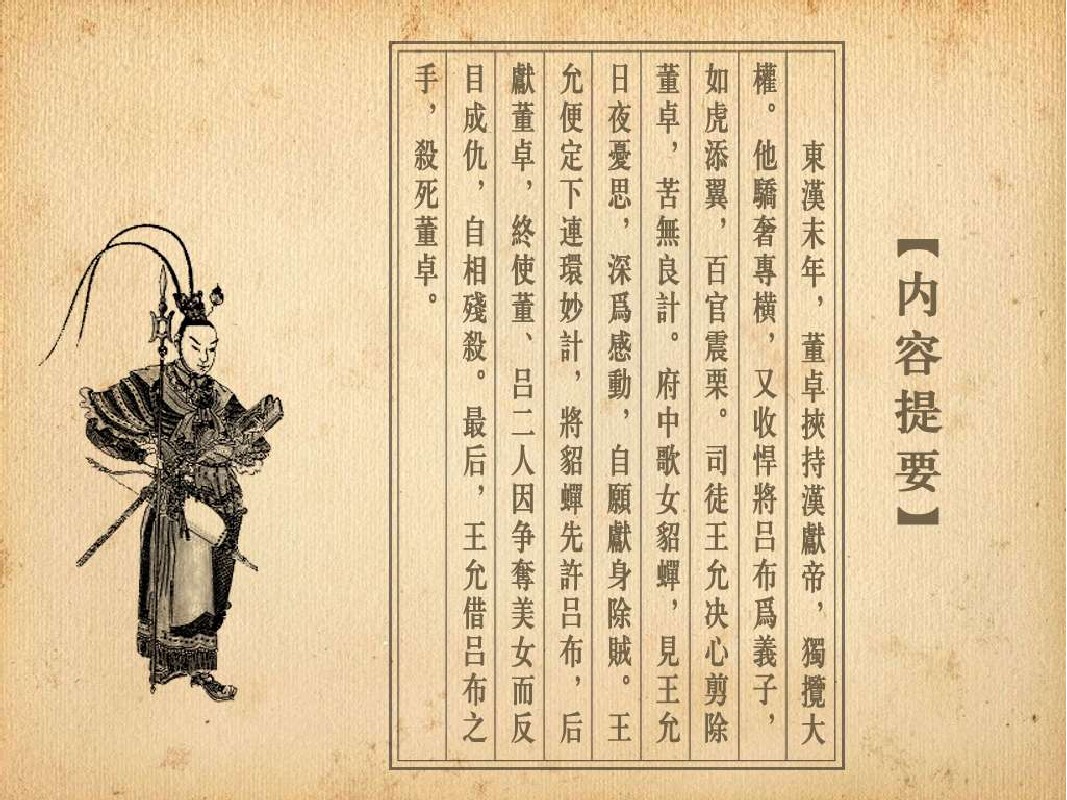 【内容提要】
東漢末年，董卓挾持漢獻帝，獨攬大
權。他驕奢專横，又收悍將吕布爲義子，
如虎添翼，百官震栗。司徒王允决心剪除
董卓，苦無良計。府中歌女貂蟬，見王允
日夜憂思，深爲感動，自願獻身除賊。王
允便定下連環妙計，將貂蟬先許吕布，后
獻董卓，終使董、吕二人因争奪美女而反
目成仇，自相殘殺。最后，王允借吕布之
手，殺死董卓。